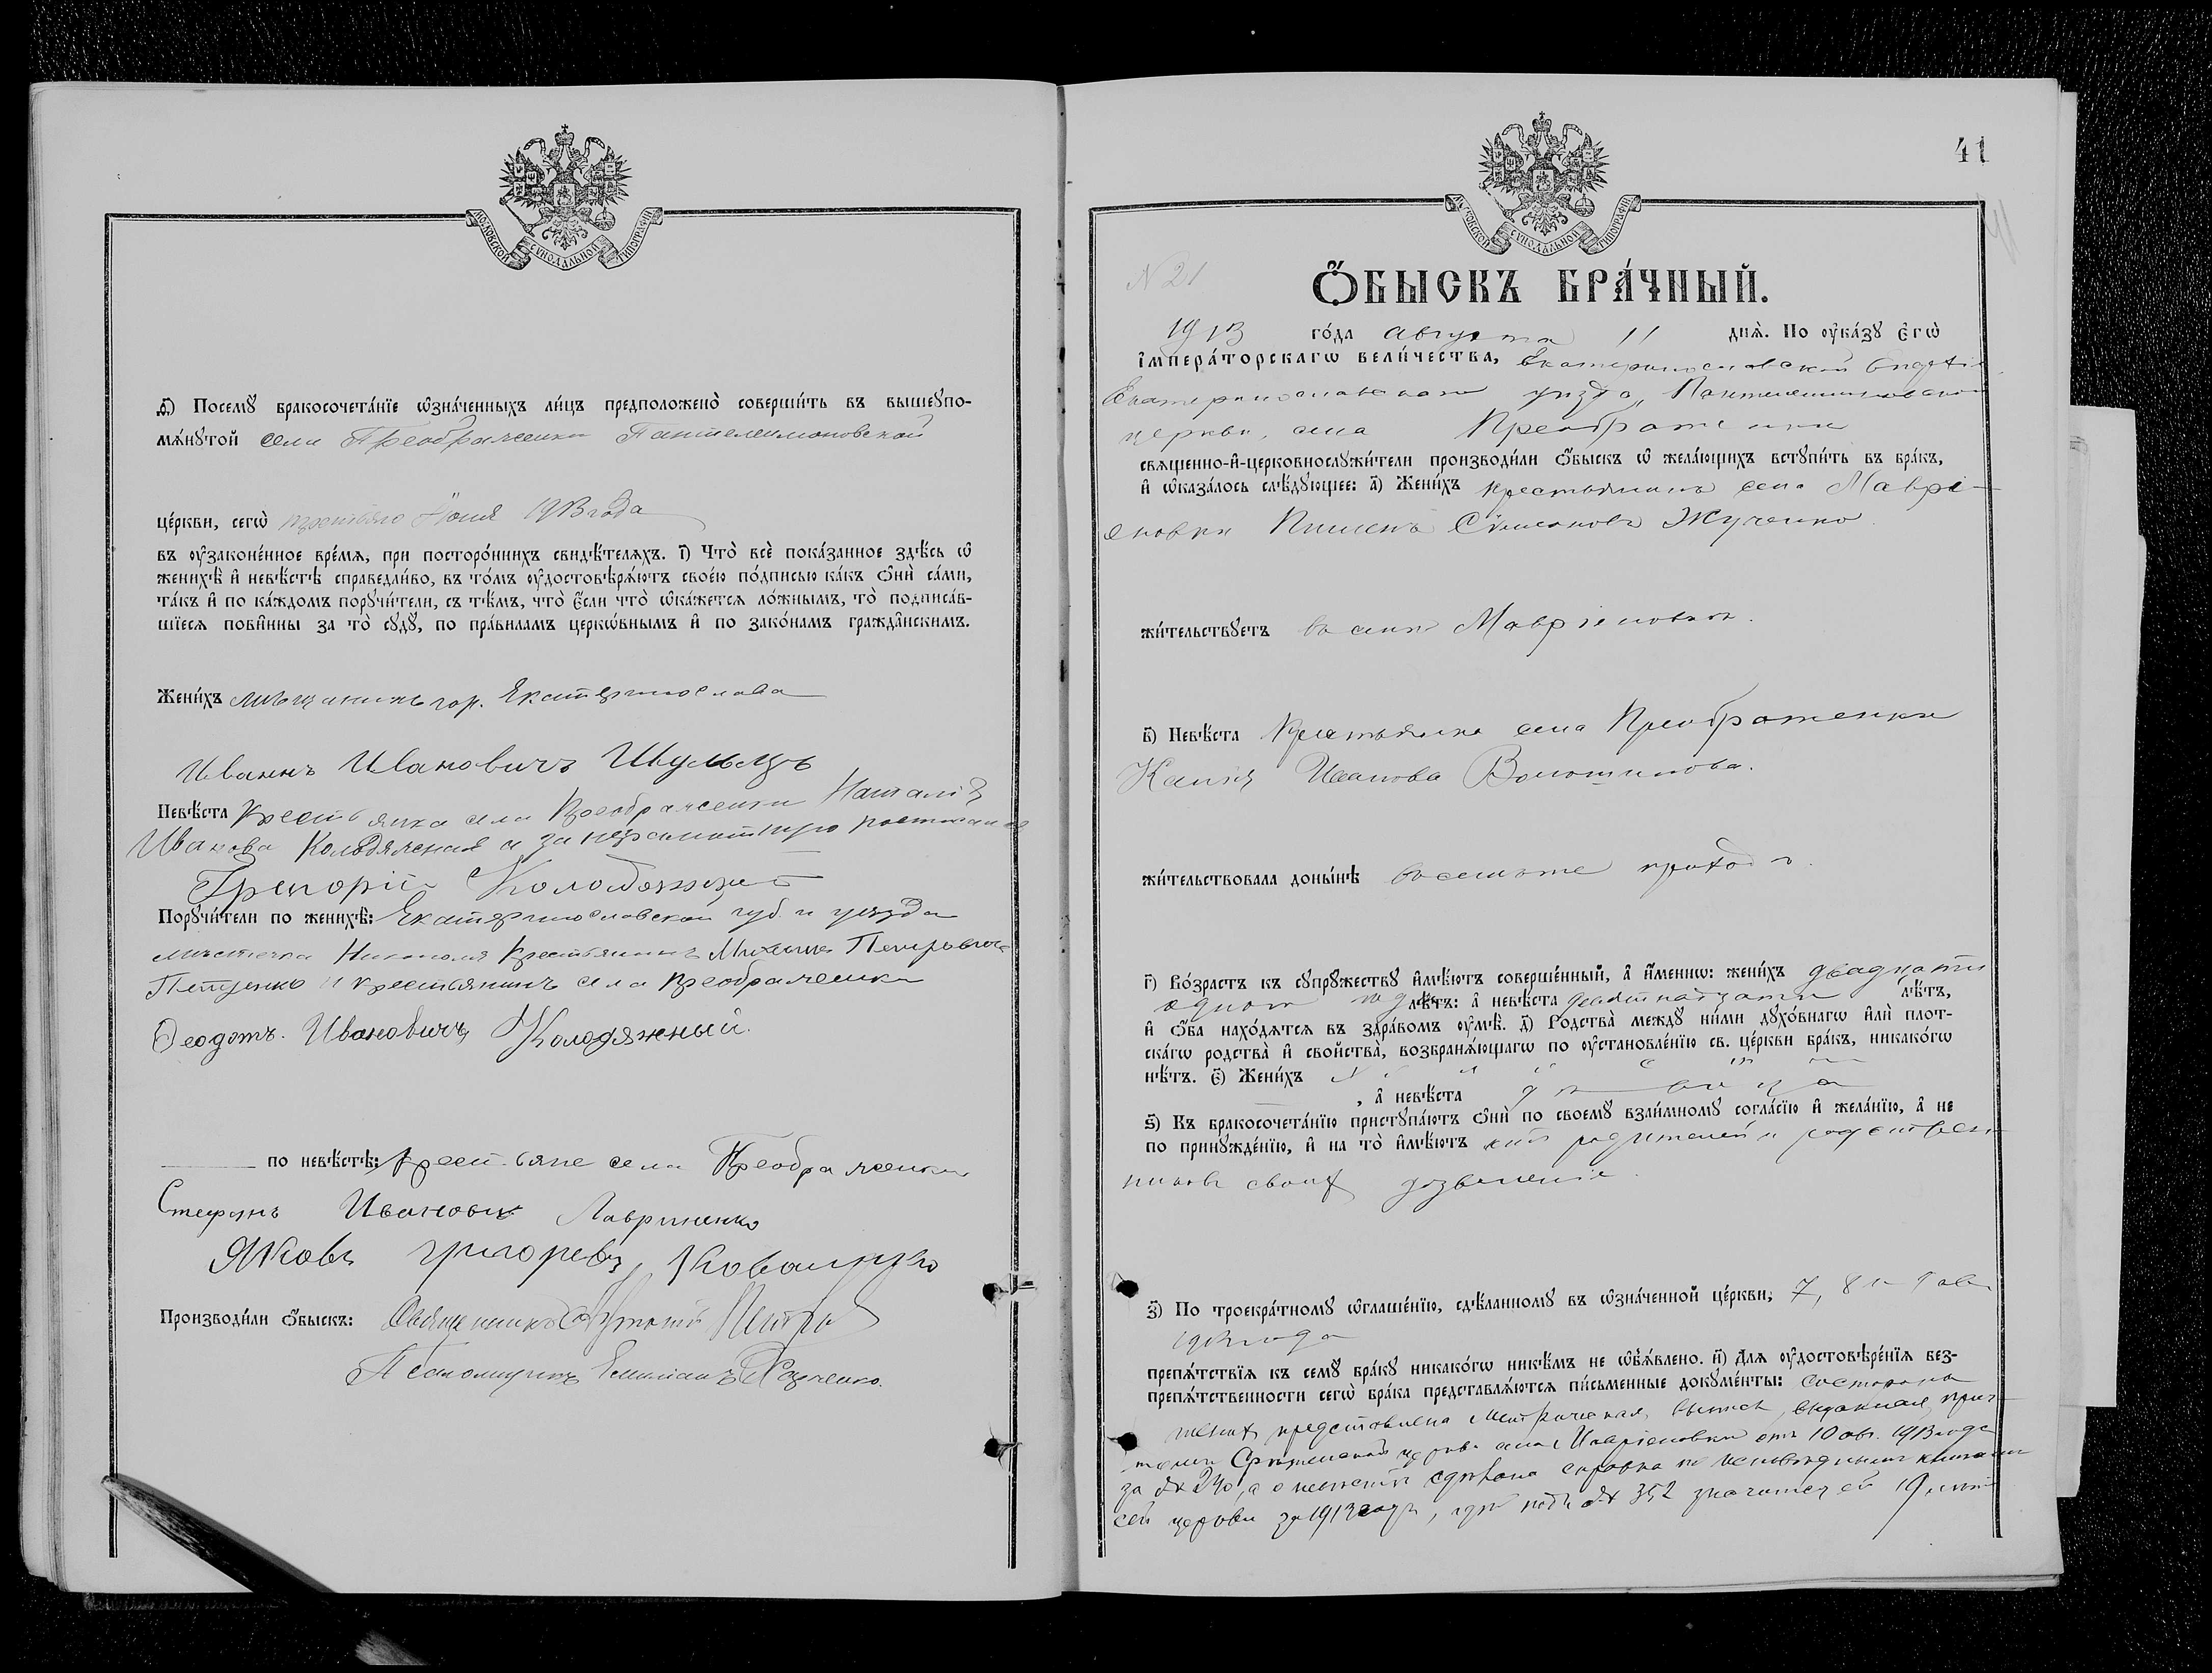 МОСКОВСКОЙ СѴНОДАЛЬНОЙ ТИПОГРАФІИ
ѳ҃) Посемꙋ бракосочета́нїе ѡзна́ченныхъ ли́цъ предположено̀ соверши́ть въ вышеꙋпо-
мѧ́нꙋтой села Преображенки Пантелеимоновской
це́ркви, сегѡ̀ третьяго Июня 1913 года
въ ᲂу҆зако́ненное вре́мѧ, при посторо́ннихъ свидѣ́телѧхъ. і҃) Что̀ всѐ пока́занное здѣ́сь ѡ҆
женихѣ̀ и҆ невѣ́стѣ справедли́во, въ то́мъ ᲂу҆достовѣрѧ́ютъ свое́ю по́дписью ка́къ ѻ҆нѝ са́ми,
та́къ и҆ по ка́ждомъ порꙋчи́тели, съ тѣ́мъ, что̀ є҆́сли что̀ ѡ҆ка́жетсѧ ло́жнымъ, то̀ подписа́в-
шїесѧ пови́нны за то̀ сꙋдꙋ̀, по пра́виламъ церкѡ́внымъ и҆ по зако́намъ гражда́нскимъ.
Жени́хъ мѣщанинъ гор. Екатеринослава
Иванъ Ивановичъ Шульцъ
Невѣ́ста Крестьянка села Преображенки Наталія
Иванова Колодяжная а за неграмотную росписался
Григорій Колодяжный
Порꙋчи́тели по женихѣ̀: Екатеринославской губ. и уезда
местечка Никополя Крестьянинъ Михаилъ Петровичъ
и крестьянинъ села Преображенки
Ѳеодотъ Ивановичъ Колодяжный.
по невѣ́стѣ: Крестьяне села Преображенки
Стефанъ Ивановъ Лавриненко
Яковъ Григоревъ
Производи́ли ѻ҆́быскъ: Священникъ
Псаломщикъ Емилианъ
41
N 21
МОСКОВСКОЙ СѴНОДАЛЬНОЙ ТИПОГРАФІИ
Ѻ҆́БЫСКЪ БРА́ЧНЫЙ.
1913 го́да августа 11 днѧ̀. По ᲂу҆ка́зꙋ є҆гѡ̀
і҆мпера́торскагѡ вели́чества, Екатеринославской епархіи
Екатеринославскаго уѣзда, Пантелеимоновской
церкви, села Преображенки
свѧщенно-и҆-церковнослꙋжи́тели производи́ли ѻ҆́быскъ ѡ҆ жела́ющихъ встꙋпи́ть въ бра́къ,
и҆ ѡ҆каза́лось слѣ́дꙋющее: а҃) Жени́хъ крестьянинъ села Маврі-
еновки Пименъ Симеоновъ Жученко
жи́тельствꙋетъ въ селѣ Мавріеновкѣ.
в҃) Невѣ́ста Крестьянка села Преображенки
Иванова Волошинова.
жи́тельствовала доны́нѣ въ семъ же приходѣ.
г҃) Во́зрастъ къ сꙋпрꙋ́жествꙋ и҆мѣ́ютъ соверше́нный, а҆ и҆́меннѡ: жени́хъ двадцати
одного года лѣ́тъ: а҆ невѣ́ста девятнадцати лѣ́тъ,
и҆ ѻ҆́ба нахо́дѧтсѧ въ здра́вомъ ᲂу҆мѣ̀. д҃) Родства̀ междꙋ̀ ни́ми дꙋхо́внагѡ и҆лѝ плот-
ска́гѡ родства̀ и҆ сво́йства̀, возбранѧ́ющагѡ по ᲂу҆становле́нїю св. це́ркви бра́къ, никако́гѡ
нѣ́тъ. є҃) Жени́хъ
, а҆ невѣ́ста дѣвица
ѕ҃) Къ бракосочета́нїю пристꙋпа́ютъ ѻ҆нѝ по своемꙋ̀ взаи́мномꙋ согла́сїю и҆ жела́нїю, а҆ не
по принꙋжде́нїю, и҆ на то̀ и҆мѣ́ютъ отъ родителей и родствен-
никовъ своихъ дозволеніе.
з҃) По троекра́тномꙋ ѡ҆глаше́нїю, сдѣ́ланномꙋ въ ѡ҆зна́ченной це́ркви, 7, 8 и 9 авг.
1913 года
препѧ́тствїѧ къ семꙋ̀ бра́кꙋ никако́гѡ никѣ́мъ не ѡ҆б̾ѧ́влено. и҃) Длѧ ᲂу҆достовѣре́нїѧ без-
препѧ́тственности сегѡ̀ бра́ка представлѧ́ютсѧ пи́сьменные докꙋме́нты: со стороны
жениха представлена метрическая выпись, выданная прич-
томъ Срѣтенской церкви села Мавріеновки отъ 10 авг. 1913 года
за № 240, а о невѣстѣ сдѣлана справка по исповѣднымъ книгамъ
сей церкви за 1913 годъ, гдѣ подъ № 352 значится ей 19 лѣтъ